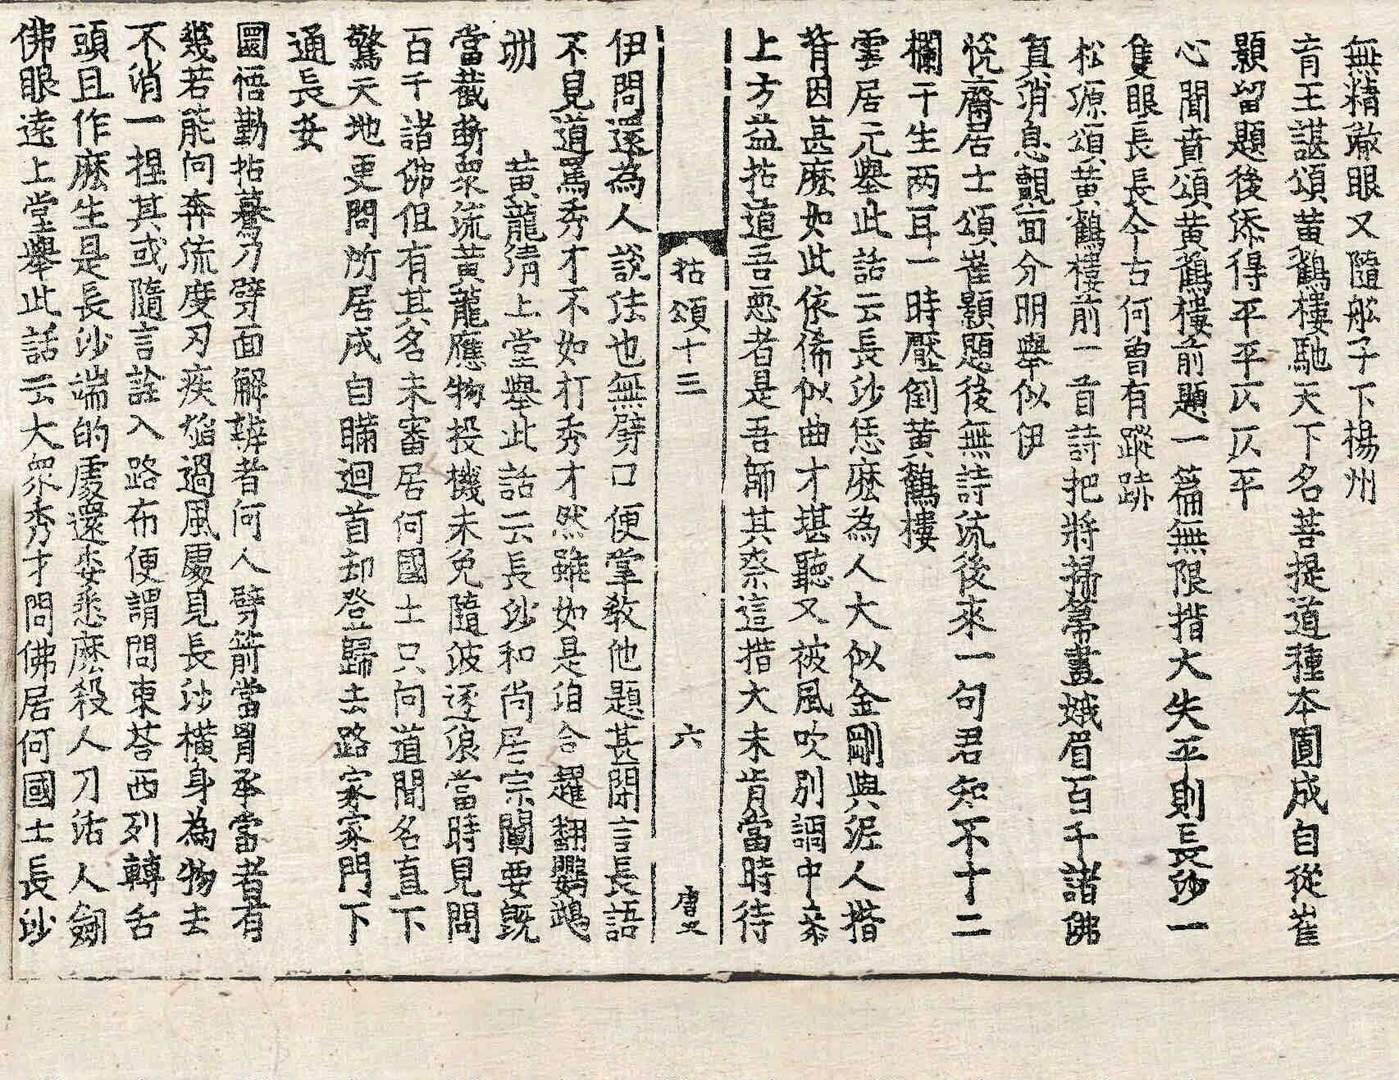 無精敢眼又隨舩子下楊州
育王諶頌黄鶴樓馳天下名菩提道種本圓成自從崔
顥留題後添得平平仄仄平
心聞賁頌黄鶴樓前題一篇無限措大失平則長沙一
隻眼長長今古何曾有蹤跡
松源頌黄鶴樓前一首詩把將掃箒畫娥眉百千諸佛
真消息覿面分明舉似伊
悅齋居士頌崔顥題後無詩流後來一句君知不十二
欄干生两耳一時壓倒黄鶴樓
雲居元舉此話云長沙恁麽為人大似金剛與泥人揩
背因甚麽如此依俙似曲才堪聽又被風吹別調中
上方益拈道吾惡者是吾師其奈這措大未肯當時待
拈頌十三 六
伊問還為人說法也無劈口便掌教他題甚閑言長語
不見道罵秀才不如打秀才然雖如是洎合趯翻鸚鵡
洲 黄龍清上堂舉此話云長沙和尚居宗闡要旣
當截斷衆流黄龍應物投機未免隨波逐浪當時見問
百千諸佛但有其名未審居何國土只向道聞名直下
驚天地更問所居成自瞞迴首却登歸去路家家門下
通長安
圜悟勤拈驀刃劈面解辨者何人劈箭當胷承當者有
幾若能向奔流度刃疾焰過風處見長沙橫身為物去
不消一揑其或隨言詮入路布便謂問東荅西列轉舌
頭且作麽生是長沙端的處還委悉麽殺人刀活人劒
佛眼遠上堂舉此話云大衆秀才問佛居何國土長沙